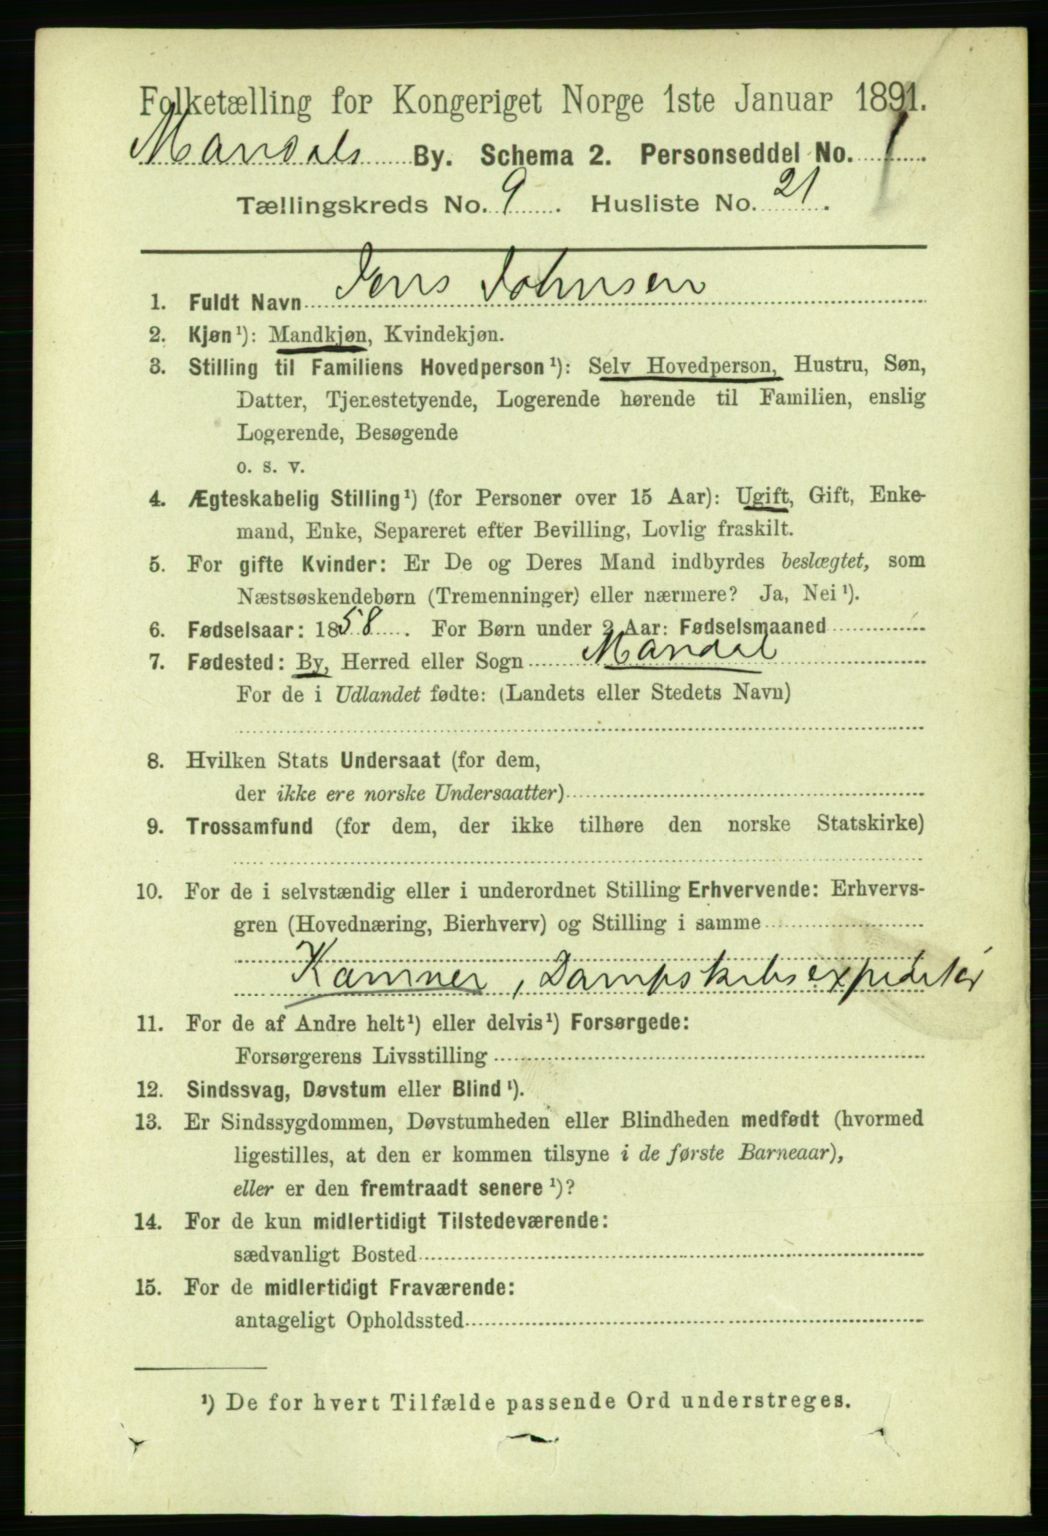 Folketælling for Kongeriget Norge 1ste Januar 1891.
Mandals By. Schema 2. Personseddel No. 1.
Tællingskreds No. 9. Husliste No. 21.
1. Fuldt Navn Jens Johnsen
2. Kjøn¹): Mandkjøn, Kvindekjøn.
3. Stilling til Familiens Hovedperson¹): Selv Hovedperson, Hustru, Søn,
Datter, Tjenestetyende, Logerende hørende til Familien, enslig
Logerende, Besøgende
o. s. v.
4. Ægteskabelig Stilling¹) (for Personer over 15 Aar): Ugift, Gift, Enke-
mand, Enke, Separeret efter Bevilling, Lovlig fraskilt.
5. For gifte Kvinder: Er De og Deres Mand indbyrdes beslægtet, som
Næstsøskendebørn (Tremenninger) eller nærmere? Ja, Nei¹).
6. Fødselsaar: 1858. For Børn under 2 Aar: Fødselsmaaned
7. Fødested: By, Herred eller Sogn Mandal
For de i Udlandet fødte: (Landets eller Stedets Navn)
8. Hvilken Stats Undersaat (for dem,
der ikke ere norske Undersaatter)
9. Trossamfund (for dem, der ikke tilhøre den norske Statskirke)
10. For de i selvstændig eller i underordnet Stilling Erhvervende: Erhvervs-
gren (Hovednæring, Bierhverv) og Stilling i samme
Kæmner, Dampskibsexpeditør
11. For de af Andre helt¹) eller delvis¹) Forsørgede:
Forsørgerens Livsstilling
12. Sindssvag, Døvstum eller Blind¹).
13. Er Sindssygdommen, Døvstumheden eller Blindheden medfødt (hvormed
ligestilles, at den er kommen tilsyne i de første Barneaar),
eller er den fremtraadt senere¹)?
14. For de kun midlertidigt Tilstedeværende:
sædvanligt Bosted
15. For de midlertidigt Fraværende:
antageligt Opholdssted
¹) De for hvert Tilfælde passende Ord understreges.